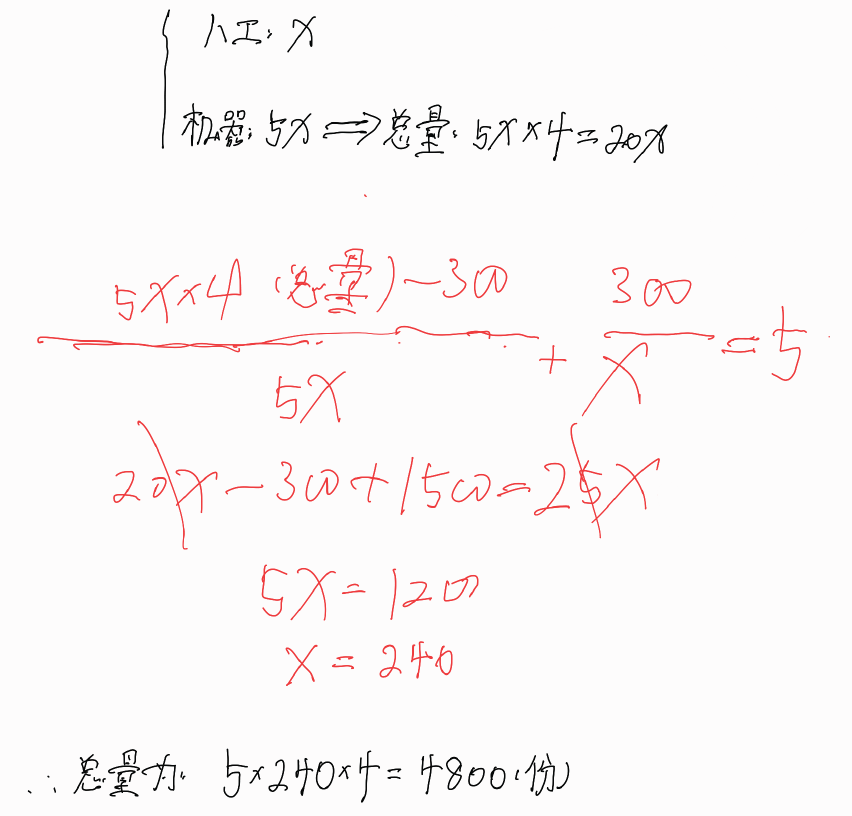 人工: x
机器: 5x ⟹ 总量: 5x×4=20x
5x×4 (总量)-300 / 5x + 300 / x = 5
20x-300+1500=25x
5x=1200
x=240
∴ 总量为: 5×240×4=4800(份)